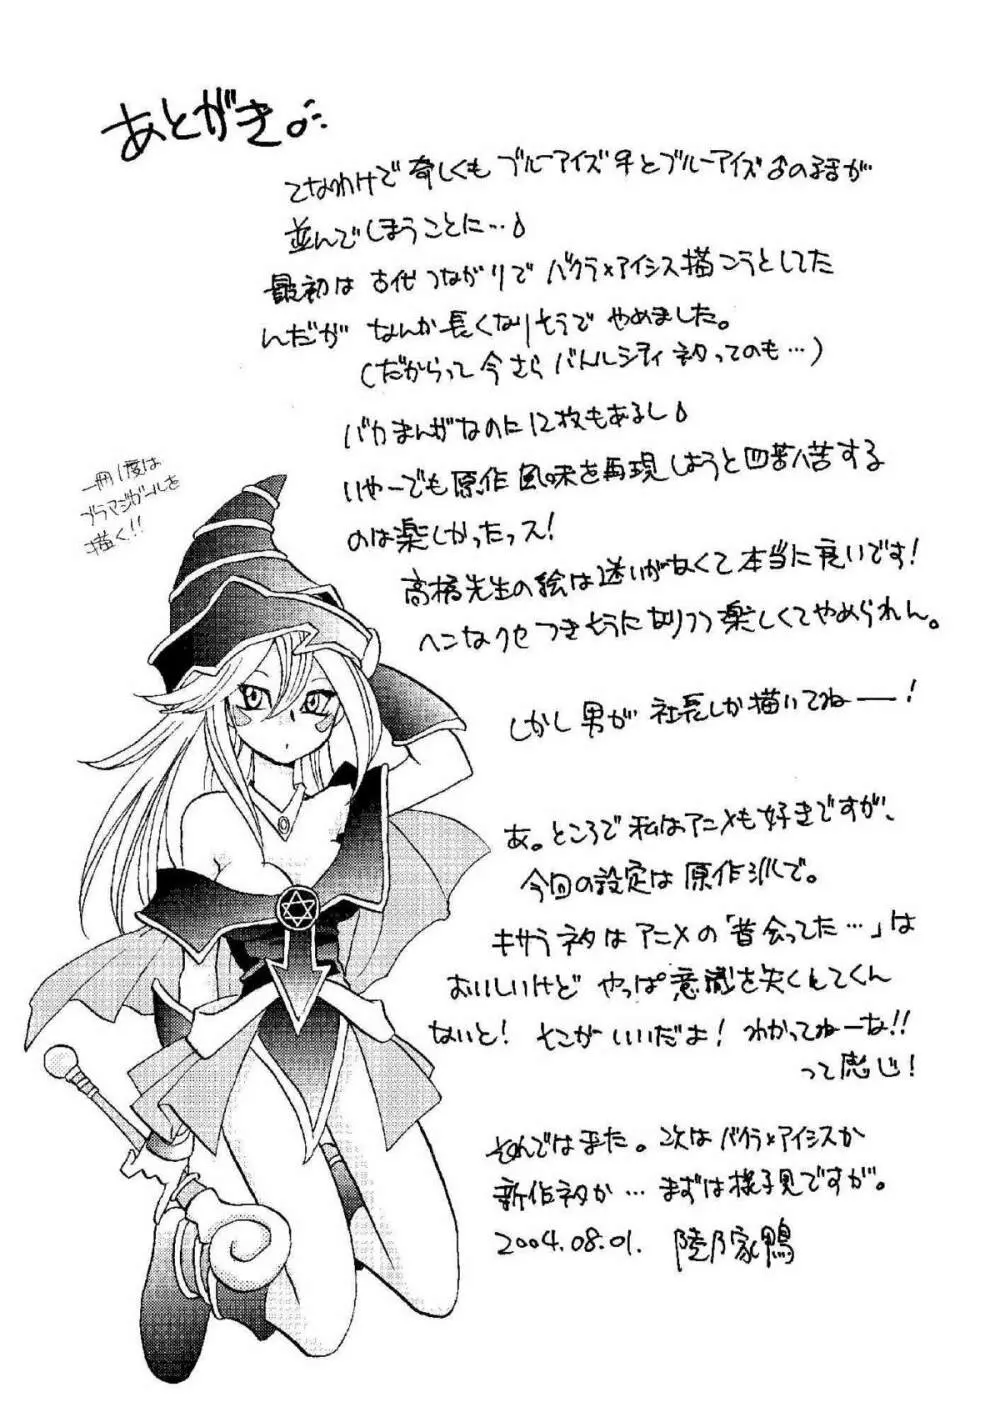 あとがき。
てなわけで奇しくもブルーアイズ♀とブルーアイズ♂の話が
並んでしまうことに…
最初は古代つながりでバクラ×アイシス描こうとしてた
んだがなんか長くなりそうでやめました。
(だからって今さらバトルシティネタってのも…)
バカまんがなのに12枚もあるし
いやーでも原作風味を再現しようと四苦八苦する
のは楽しかったっス!
高橋先生の絵は迷いがなくて本当に良いです!
ヘンなクセつきそうになりつつ楽しくてやめられん。
しかし男が社長しか描いてねーー!
一冊1度は
ブラマジガールを
描く!!
あ。ところで私はアニメも好きですが、
今回の設定は原作派で。
キサラネタはアニメの「昔会ってた…」は
おいしいけどやっぱ意識を失くしてくん
ないと! そこがいいだよ! わかってねーな!!
って感じ!
それではまた。次はバクラ×アイシスか
新作ネタか…まずは様子見ですが。
2004.08.01. 陸乃家鴨